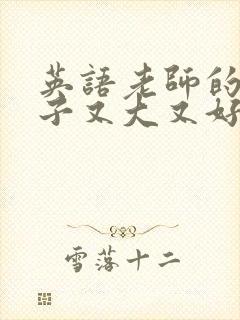 英語老師的
子又大又好
雪落十二